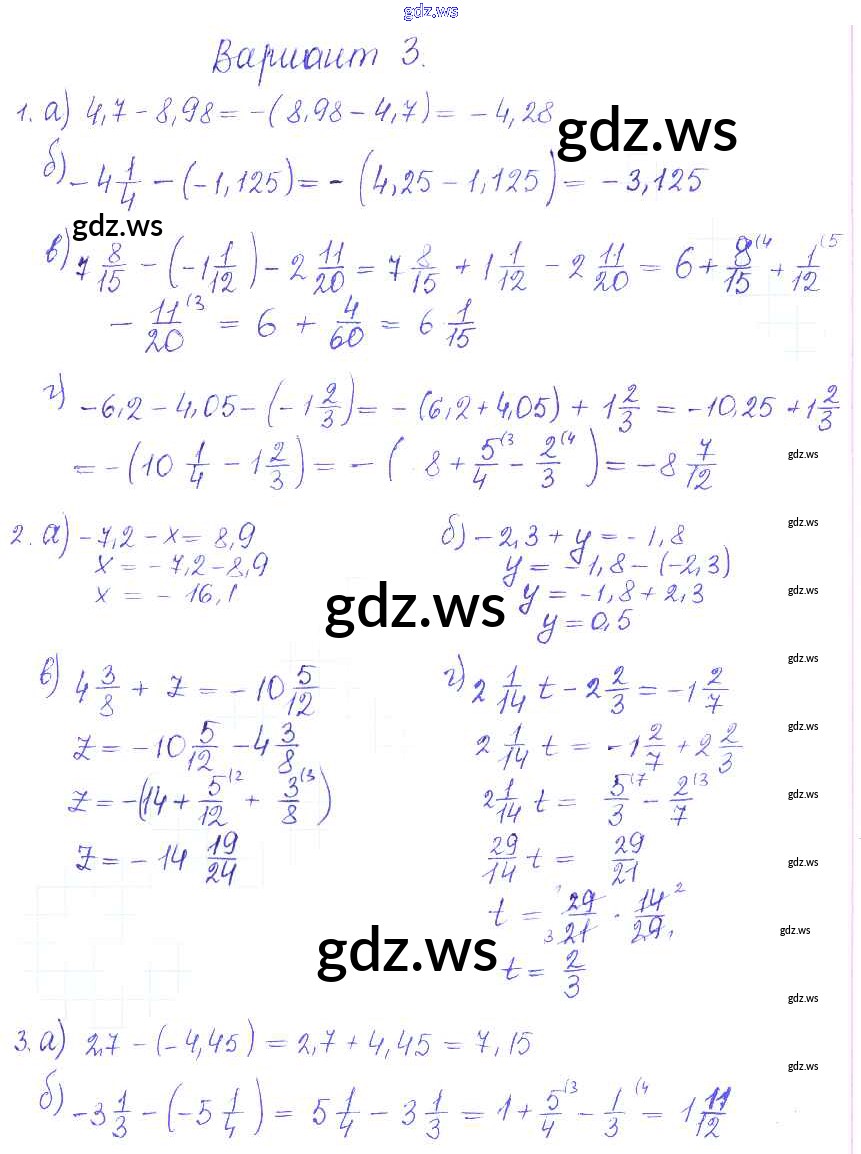 gdz.ws
Вариант 3.
1. а) 4,7 - 8,98 = -(8,98 - 4,7) = -4,28
gdz.ws
б) -4 1/4 - (-1,125) = -(4,25 - 1,125) = -3,125
gdz.ws
в) 7 8/15 - (-1 1/12) - 2 11/20 = 7 8/15 + 1 1/12 - 2 11/20 = 6 + 8/15 (4 + 1/12 (5
- 11/20 (3 = 6 + 4/60 = 6 1/15
г) -6,2 - 4,05 - (-1 2/3) = -(6,2 + 4,05) + 1 2/3 = -10,25 + 1 2/3
= -(10 1/4 - 1 2/3) = -(8 + 5/4 (3 - 2/3 (4) = -8 7/12
gdz.ws
2. а) -7,2 - x = 8,9
x = -7,2 - 8,9
x = -16,1
gdz.ws
б) -2,3 + y = -1,8
y = -1,8 - (-2,3)
y = -1,8 + 2,3
y = 0,5
gdz.ws
gdz.ws
в) 4 3/8 + z = -10 5/12
z = -10 5/12 - 4 3/8
z = -(14 + 5/12 (2 + 3/8 (3)
z = -14 19/24
gdz.ws
г) 2 1/14 t - 2 2/3 = -1 2/7
2 1/14 t = -1 2/7 + 2 2/3
2 1/14 t = 5/3 (7 - 2/7 (3
29/14 t = 29/21
1 t = 29/21 3 · 14/29 2 1
t = 2/3
gdz.ws
gdz.ws
gdz.ws
gdz.ws
gdz.ws
gdz.ws
gdz.ws
3. а) 2,7 - (-4,45) = 2,7 + 4,45 = 7,15
gdz.ws
б) -3 1/3 - (-5 1/4) = 5 1/4 - 3 1/3 = 1 + 5/4 (3 - 1/3 (4 = 1 11/12